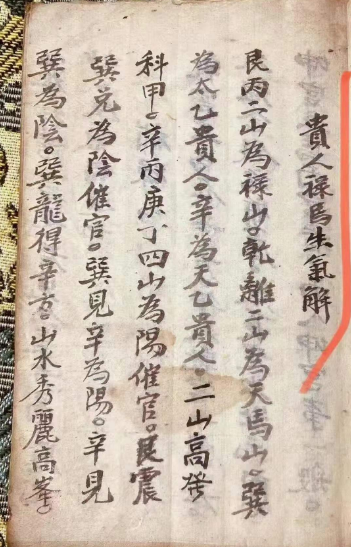 貴人祿馬生氣解
艮丙二山為祿山。乾離二山為天馬山。巽
為太乙貴人。辛為天乙貴人。二山高發
科甲。辛丙庚丁四山為陽催官。艮震
巽兌為陰催官。巽見辛為陽。辛見
巽為陰。巽龍得辛方。山水秀麗高峯